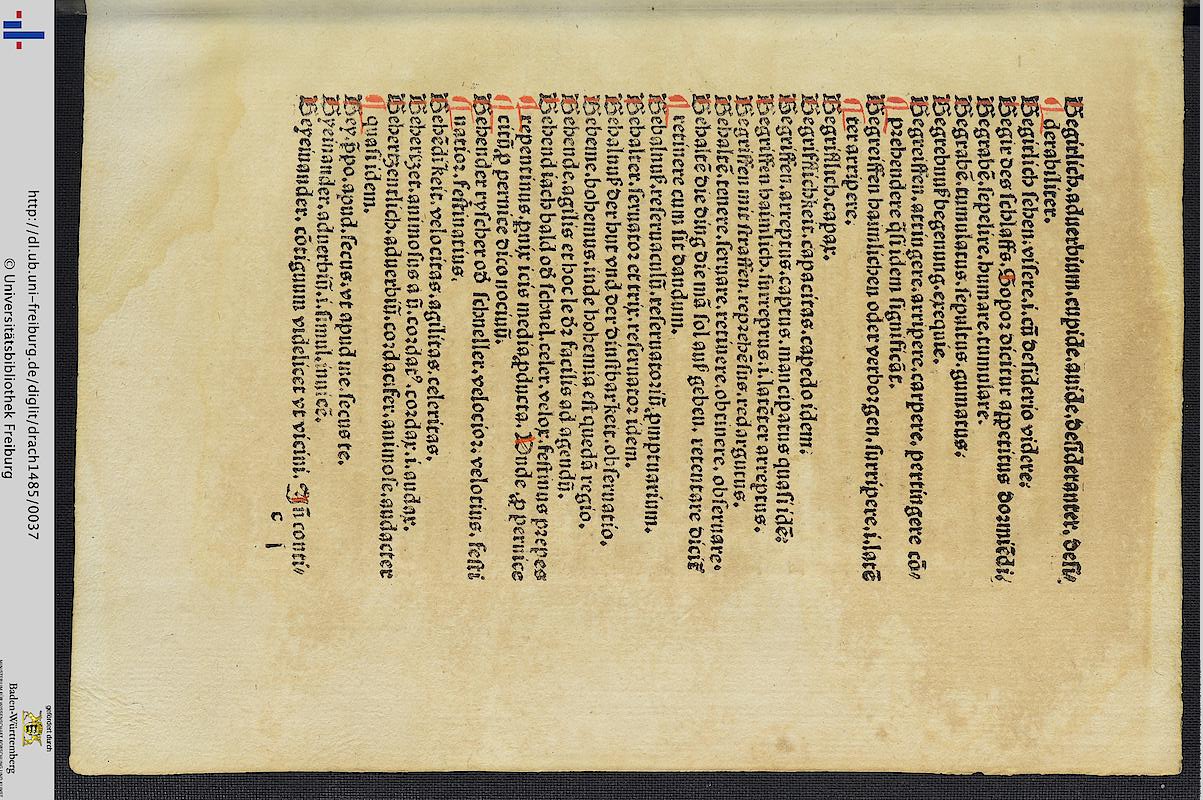 Begirlich. aduerbium. cupide. auide. desideranter. desi⸗
derabiliter.
Begirlich sehen. visere. i. cū desiderio videre.
Begir des schlaffs. Sopor dicitur appetitus dormiēdi.
Begrabē. sepelire. humare. tumulare.
Begrabē. tumulatus. sepultus. gumatus.
Begrebnuß begenung. exequie.
Begreiffen. attingere. arripere. carpere. pertingere cō⸗
prehendere qͣsi idem significāt.
Begreiffen haimlichen oder verborgen. surripere. i. latē
ter arripere.
Begrifflich. capax.
Begrifflichkeit. capacitas. capedo idem.
Begriffen. arreptus. captus. mancipatus quasi idē.
Begriffen haimlich. surreptus. i. latēter arreptus.
Begriffen mit straffen. reprehēsus. redargutus.
Behaltē. tenere. seruare. retinere. obtinere. obseruare.
Behaltē die ding die mā sol auß geben. retentare dicit̄
retinere cum sit dandum.
Behaltnuß. reseruaculū. reseruatoriū. promptuarium.
Behalter. seruator et trix. reseruator idem.
Behaltnuß der hut vnd der dinstbarkeit. obseruatio.
Beheme. bohemus. inde bohemia est quedā regio.
Behende. agilis et hoc le dr̄ facilis ad agendū.
Behendiach bald od̄ schnel. celer. velox. festinus prepes
repentinus. pnix icis media producta. Vnde. ꝓ pernice
citū ꝓ pernice dico nociuū.
Behender ryscher od̄ schneller. velocior. velotius. festi
natior. festinatius.
Behēdikeit. velocitas. agilitas. celeritas.
Behertzet. animosus a ū. cordatꝰ. cordax. i. audax.
Behertzenlich. aduerbiū. cordaciter. animose. audacter
quasi idem.
Bey. ꝓpo. apud. secus. vt apud me. secus te.
Byeinander. aduerbiū. i. simul. inuicē.
Beyeinander. cōtiguum videlicet vt vicini. Jn conti⸗
c i
http://dl.ub.uni-freiburg.de/diglit/drach1485/0037
© Universitätsbibliothek Freiburg
gefördert durch
Baden-Württemberg